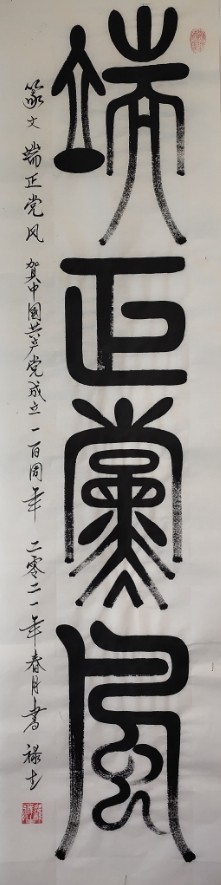 端正黨風
篆文 端正党风 贺中国共产党成立一百周年 二零二一年春月书 禄生